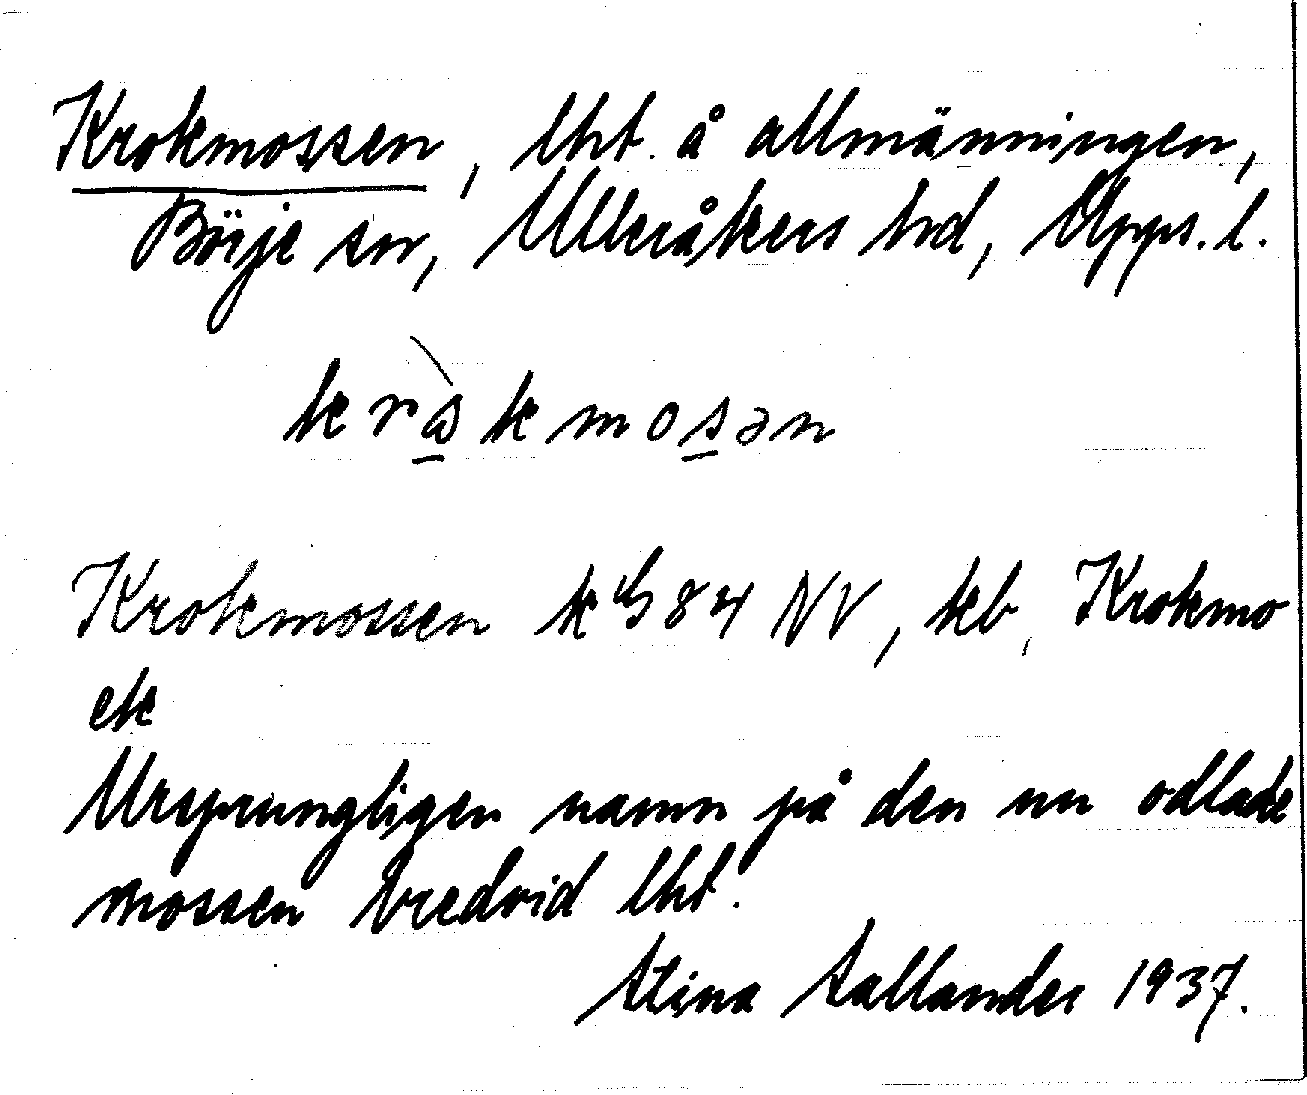 Krokmossen, lht. å allmänningen,
Börje sn, Ulleråkers hd, Upps. l.
kròkmosən
Krokmossen k 84 NV, kb, Krokmo
ek
Ursprungligen namn på den nu odlade
mossen bredvid lht.
Stina Sallander 1937.